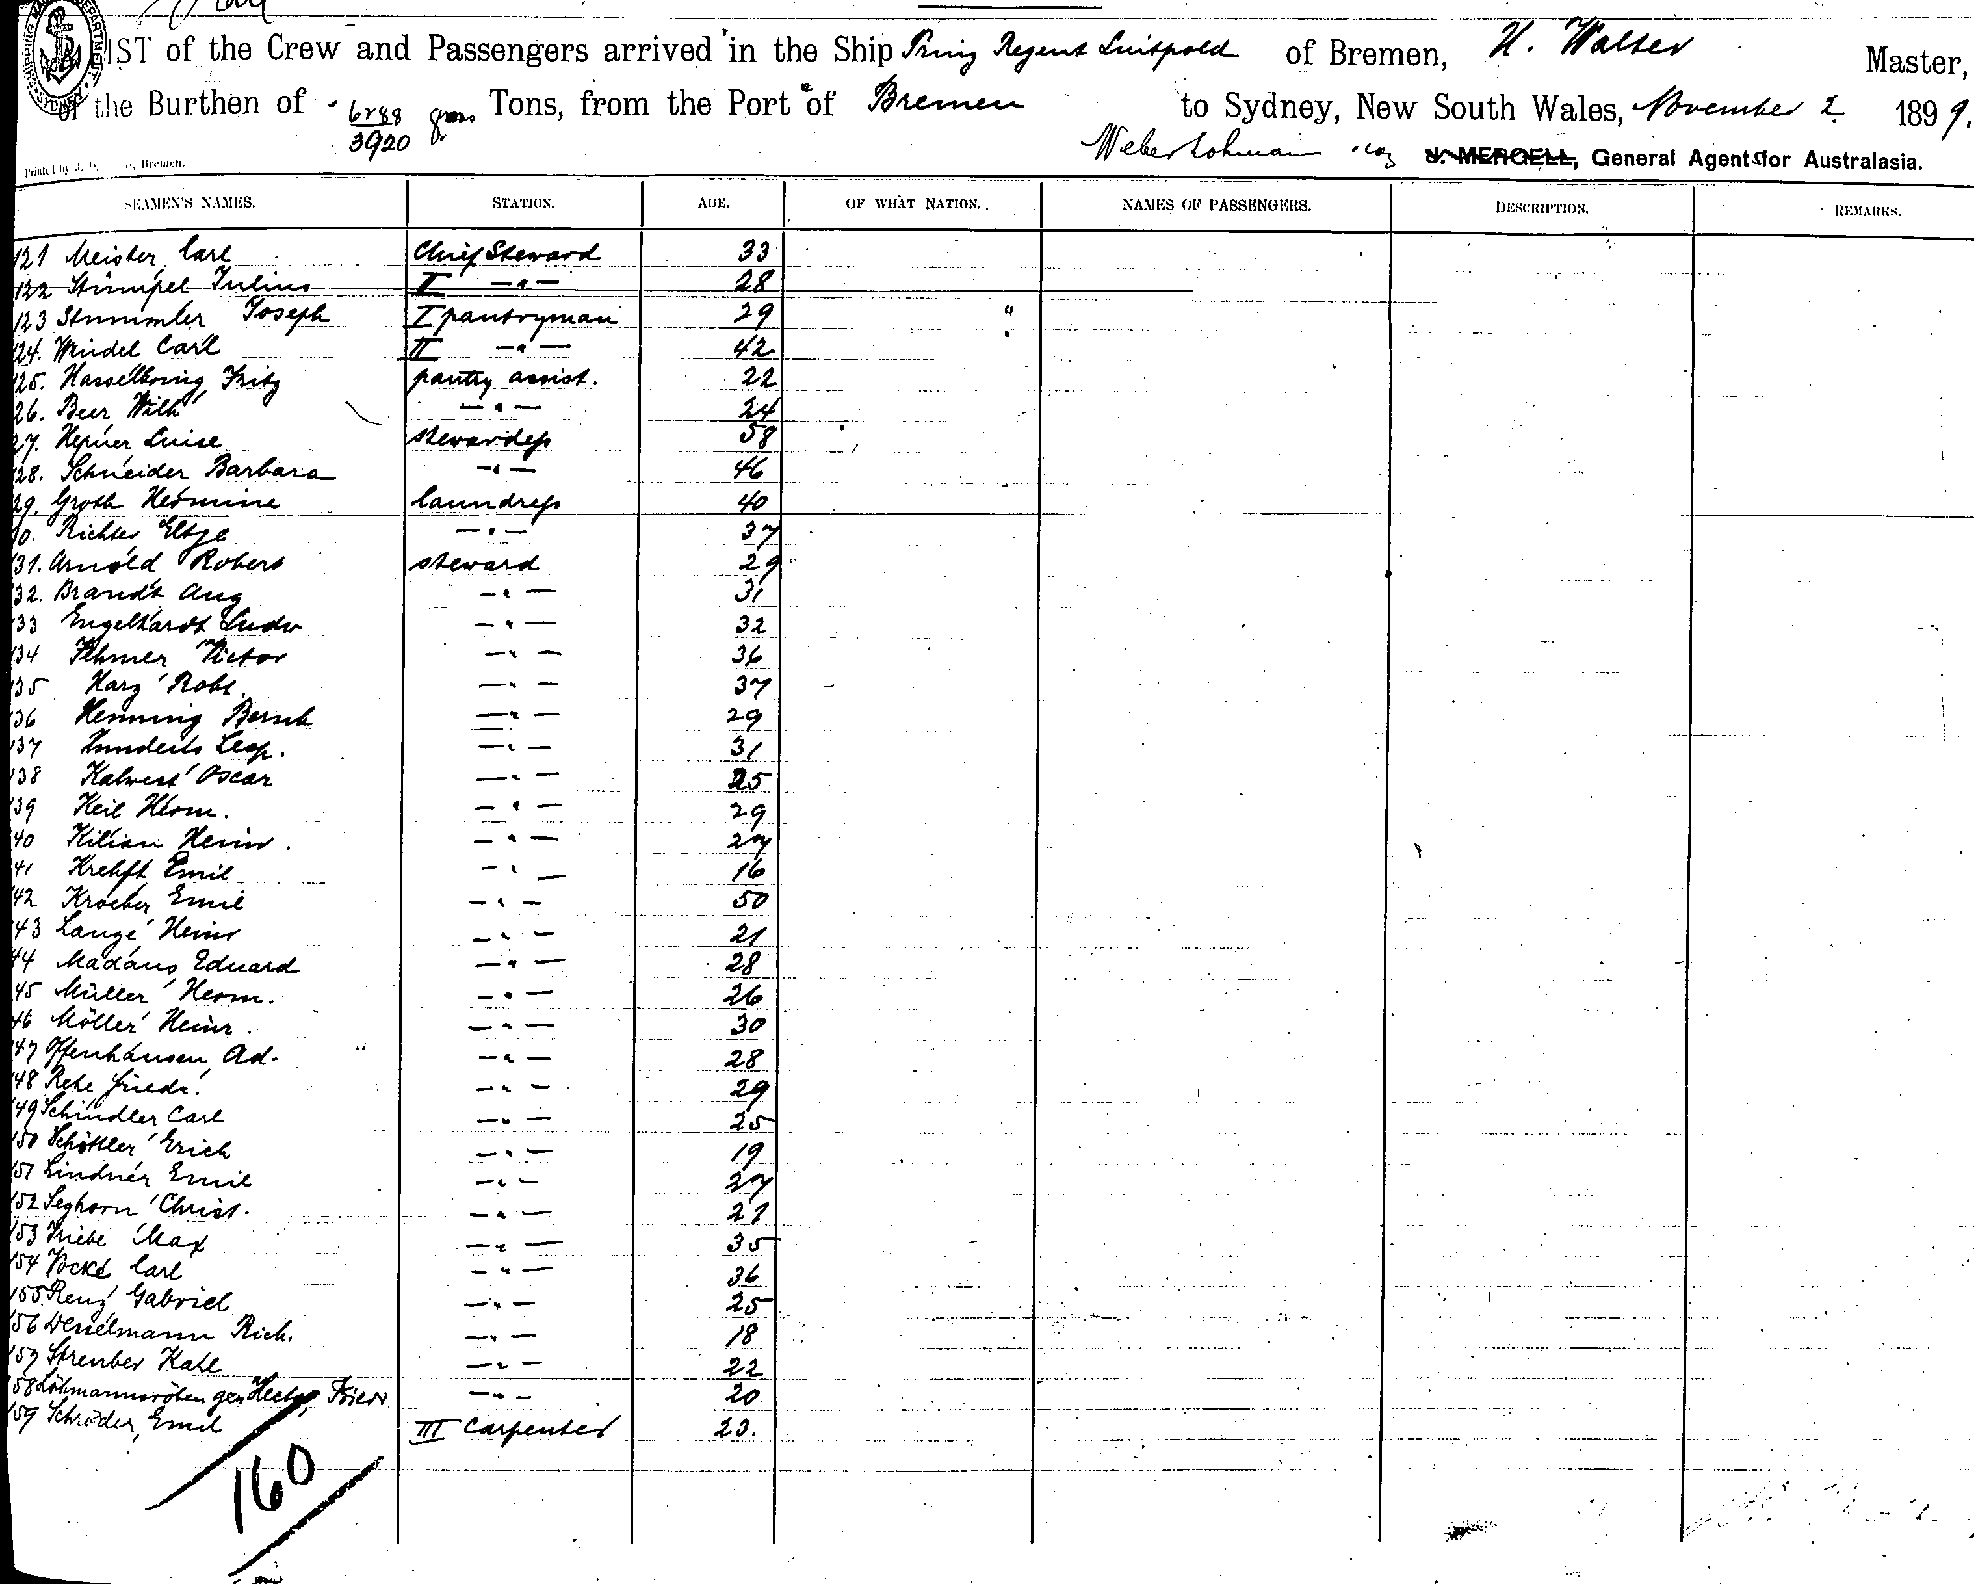 LIST of the Crew and Passengers arrived in the Ship Prinz Regent Luitpold of Bremen, H. Walter Master,
of the Burthen of 6288 gross Tons, from the Port of Bremen to Sydney, New South Wales, November 2 1899.
3920
Weber Lohmann & Co J. MERGELL, General Agents for Australasia.
Printed by Bremen.
SEAMEN'S NAMES. STATION. AGE. OF WHAT NATION. NAMES OF PASSENGERS. DESCRIPTION. REMARKS.
121 Meister, Carl Chief Steward 33
122 Stümpel Julius II -"- 28
123 Stummler Joseph I pantryman 29 "
124. Windel Carl II -"- 42
125. Hasselbring, Fritz pantry assist. 22
26. Beer Wilh -"- 24
27. Hepner Luise stewardess 58
28. Schneider Barbara -"- 46
29. Groth Hermine laundress 40
0. Richter Eltje -"- 37
131. Arnold Robert steward 29
132. Brandt Aug -"- 31
133 Engelhardt Ludw -"- 32
134 Fehmer Victor -"- 36
135 Harz Robt. -"- 37
136 Henning Bernh -"- 29
137 Leop. -"- 31
138 Kalwert Oscar -"- 25
139 Keil Herm. -"- 29
40 Kilian Heinr. -"- 27
41 Emil -"- 16
42 Kroeber Emil -"- 50
43 Lange Heinr -"- 21
44 Madaus Eduard -"- 28
45 Müller Herm. -"- 26
46 Möller Heinr. -"- 30
147 Offenhausen, Ad. -"- 28
148 Rehe Friedr. -"- 29
149 Schindler Carl -"- 25
150 Schöttler Erich -"- 19
151 Lindner Emil -"- 27
152 Seghorn Christ. -"- 21
153 Triebe Max -"- 35
154 Carl -"- 36
155 Renz Gabriel -"- 25
156 Desselmann Rich. -"- 18
157 Streuber Kahl -"- 22
158 Lohmannsröben gen Friedr -"- 20
159 Schröder, Emil III Carpenter 23.
160